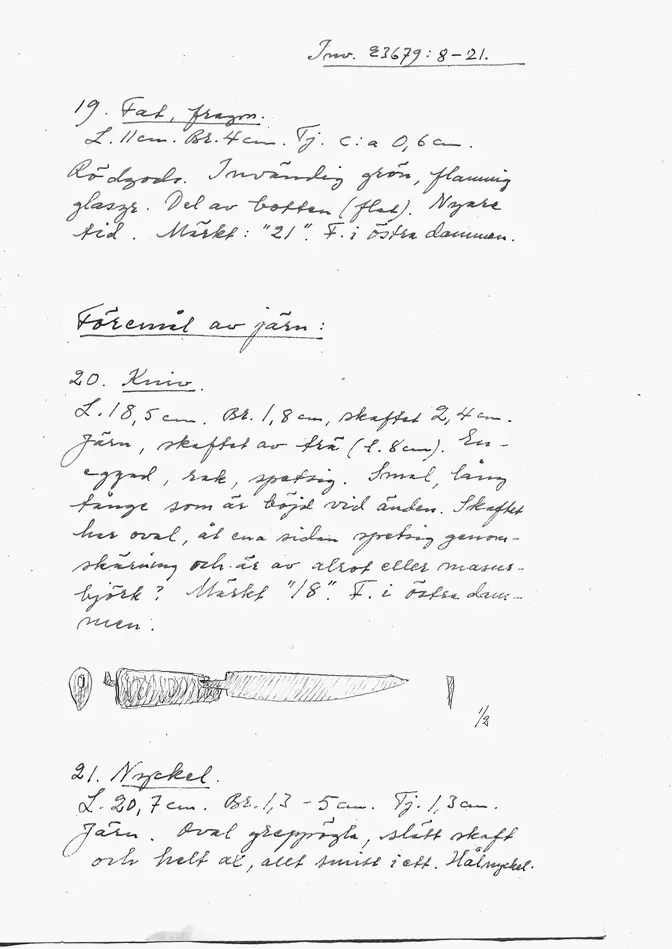 Inv. 23679:8-21.
19. Fat, fragm.
L. 11 cm. Br. 4 cm. Tj. c:a 0,6 cm.
Rödgods. Invändig grön, flammig
glasyr. Del av botten (flat). Nyare
tid. Märkt: "21". F. i östra dammen.
Föremål av järn:
20. Kniv.
L. 18,5 cm. Br. 1,8 cm, skaftet 2,4 cm.
Järn, skaftet av trä (l. 8 cm). En-
eggad, rak, spetsig. Smal, lång
tånge som är böjd vid änden. Skaftet
har oval, åt ena sidan spetsig genom-
skärning och är av alrot eller masur-
björk? Märkt "18". F. i östra dam-
men.
1/2
21. Nyckel.
L. 20,7 cm. Br. 1,3 - 5 cm. Tj. 1,3 cm.
Järn. Oval greppögla, slätt skaft
och helt ax, allt smitt i ett. Hålnyckel.